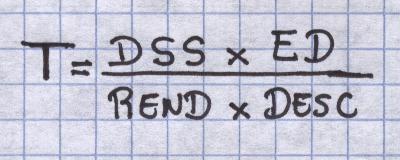 T = DSS x ED
REND x DESC